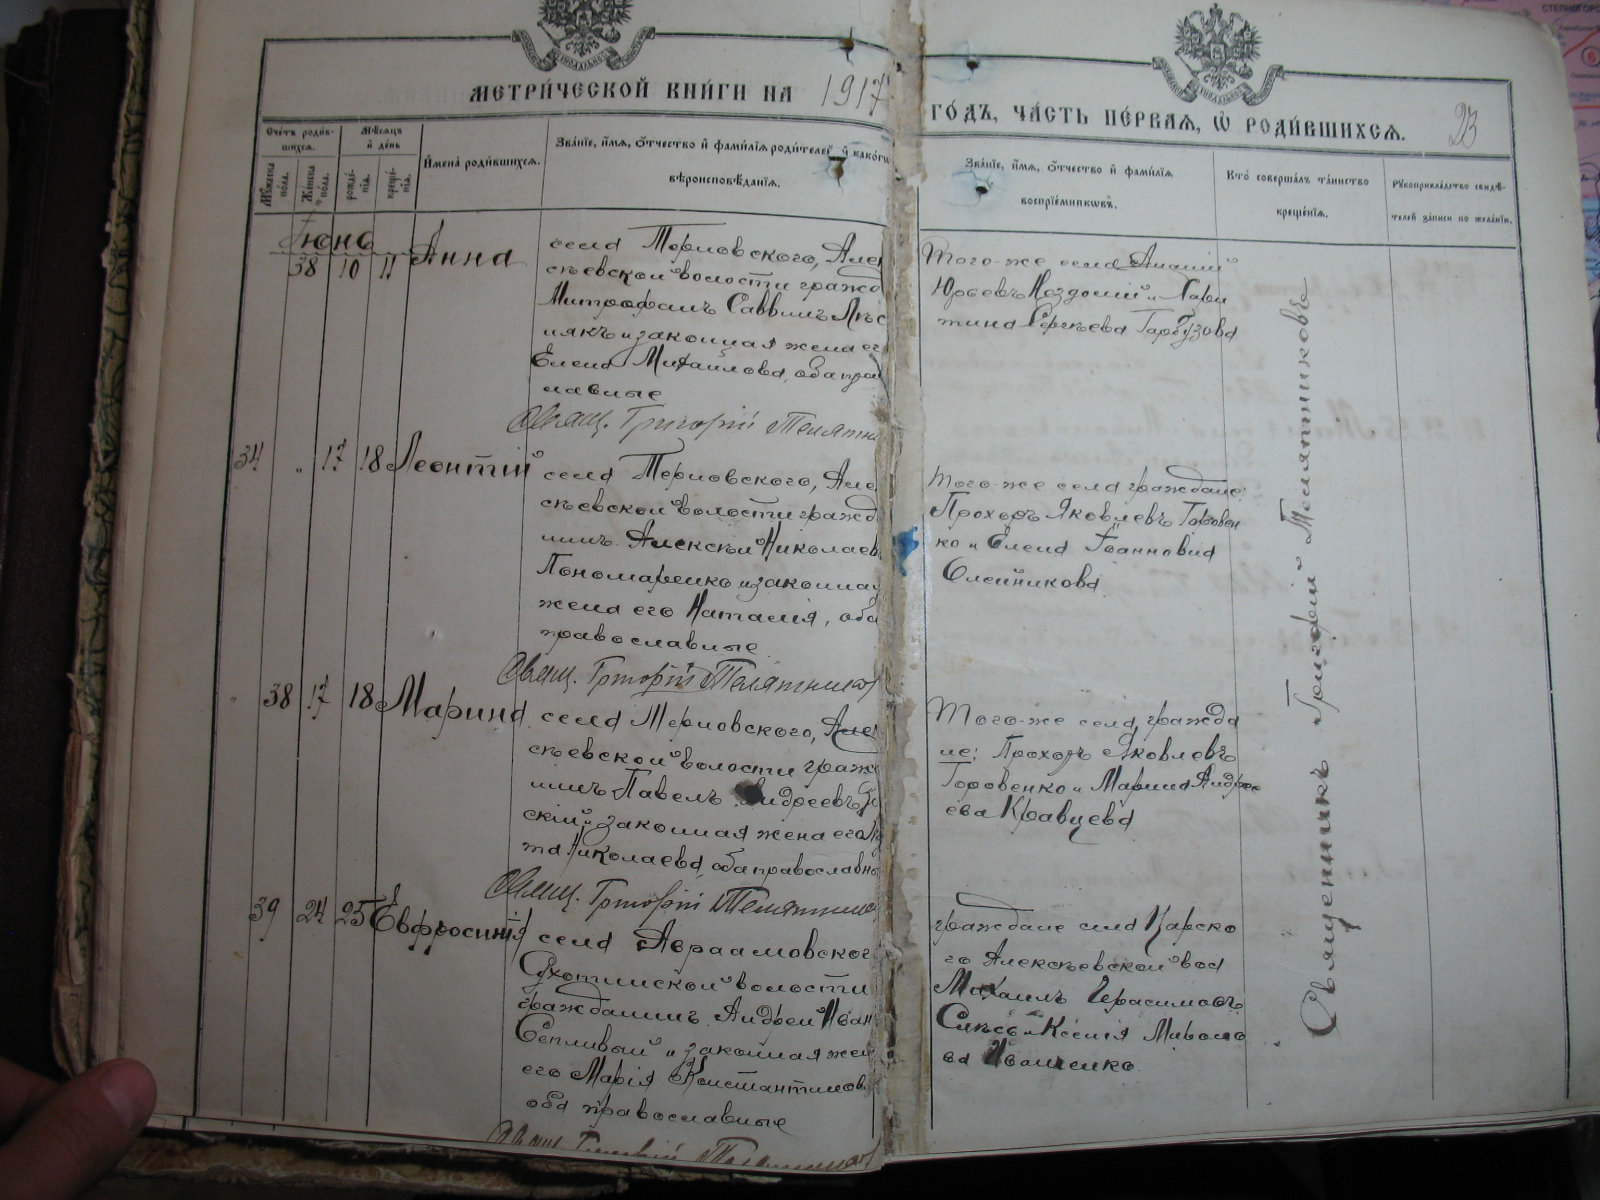 МЕТРИ́ЧЕСКОЙ КНИ́ГИ НА 1917
ГО́ДЪ, ЧА́СТЬ ПЕ́РВАЯ, Ѡ҆ РОДИ́ВШИХСЯ.
23
Сче́тъ роди́в-
шихся.
Мꙋ́жеска по́ла.
Же́нска по́ла.
Мѣ́сяцъ
и҆ де́нь
рожде́-
нїя.
креще́-
нїя.
И҆мена̀ роди́вшихся.
Зва́нїе, и҆́мя, ѻ҆́тчество и҆ фами́лїя роди́телей, и҆ како́гѡ
вѣроисповѣ́данїя.
Зва́нїе, и҆́мя, ѻ҆́тчество и҆ фами́лїя
воспрїе́мникѡвъ.
Кто̀ соверша́лъ та́инство
креще́нїя.
Рꙋкоприкла́дство свидѣ́-
телей за́писи по жела́нїю.
Іюнь
38 10 11 Анна
села Терновского, Але
ксѣевской волости гражд
Митрофанъ Саввинъ Лѣс
някъ и законная жена ег
Елена Михайлова, оба пра
славные
Свящ. Григорій Телятни
Того-же села Ананій
Юрьевъ и Хари
тина Сергѣева Гарбузова
34 " 17 18 Леонтій
села Терновского, Але
ксѣевской волости гражд
нинъ Алексѣй Николаев
Пономаренко и законная
жена его Наталія, оба
православные
Свящ. Григорій Телятников
Того-же села граждане
Прохоръ Яковлевъ Горовен
ко и Елена Іоанновна
Олейникова
" 38 17 18 Марина
села Терновского, Але
ксѣевской волости гражд
нинъ Павелъ Андреевъ
скій и законная жена его
та Николаева, оба православн
Свящ. Григорій Телятников
Того-же села, гражда
не: Прохоръ Яковлевъ
Горовенко и Марина Андре
ева Кравцева
39 24 25 Евфросинія
села Авраамовского
Сухотинской волости
гражданинъ Андрей Иван
Сепливый и законная жен
его Марія Константинов
оба православные
Свящ. Григорій Телятников
граждане села Царско
го Алексѣевской вол
Михаилъ Герасимовъ
и Ксенія Мироно
ва Иваненко.
Священникъ Григорій Телятниковъ